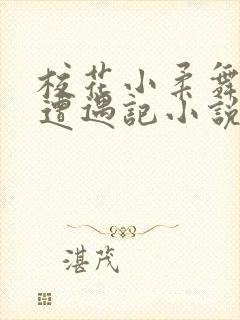 校花小柔舞
遭遇記小說
湛茂